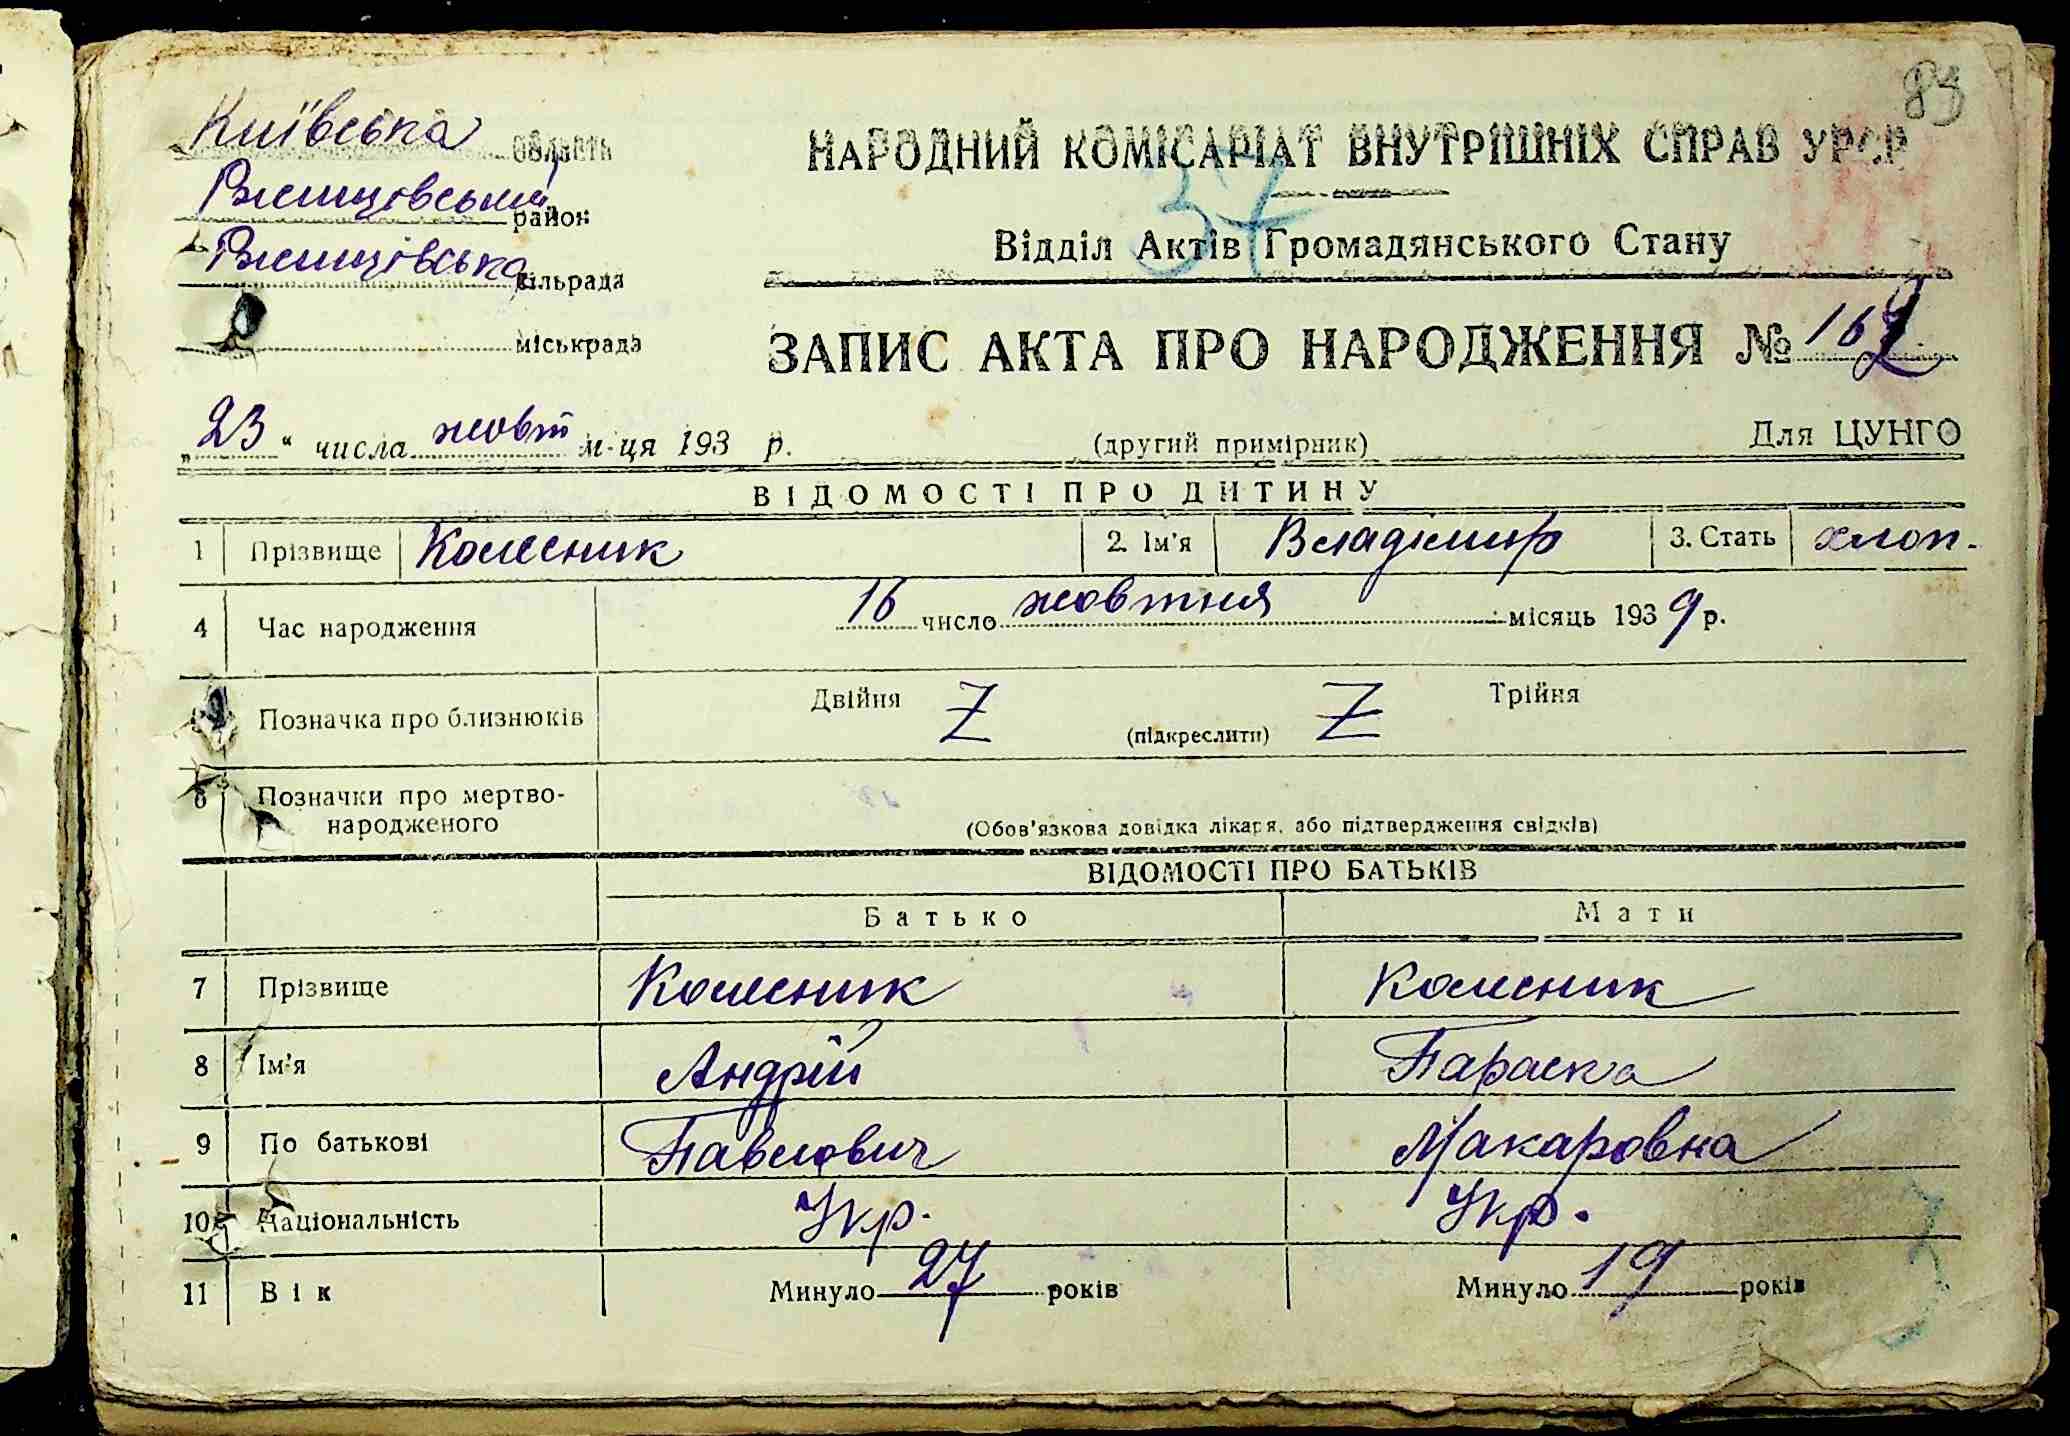 83
Київська область
Ржищівський район
Ржищівська сільрада
міськрада
НАРОДНИЙ КОМІСАРІАТ ВНУТРІШНІХ СПРАВ УРСР
37
Відділ Актів Громадянського Стану
ЗАПИС АКТА ПРО НАРОДЖЕННЯ № 162
„23“ числа жовт м-ця 193 р. (другий примірник) Для ЦУНГО
ВІДОМОСТІ ПРО ДИТИНУ
1 Прізвище Колесник 2. Ім'я Владімир 3. Стать хлоп.
4 Час народження 16 число жовтня місяць 1939 р.
Позначка про близнюків Двійня Z (підкреслити) Z Трійня
6 Позначки про мертво-
народженого (Обов'язкова довідка лікаря, або підтвердження свідків)
ВІДОМОСТІ ПРО БАТЬКІВ
Батько Мати
7 Прізвище Колесник Колесник
8 Ім'я Андрій Параска
9 По батькові Павлович Макаровна
10 Національність Укр. Укр.
11 Вік Минуло 27 років Минуло 19 років